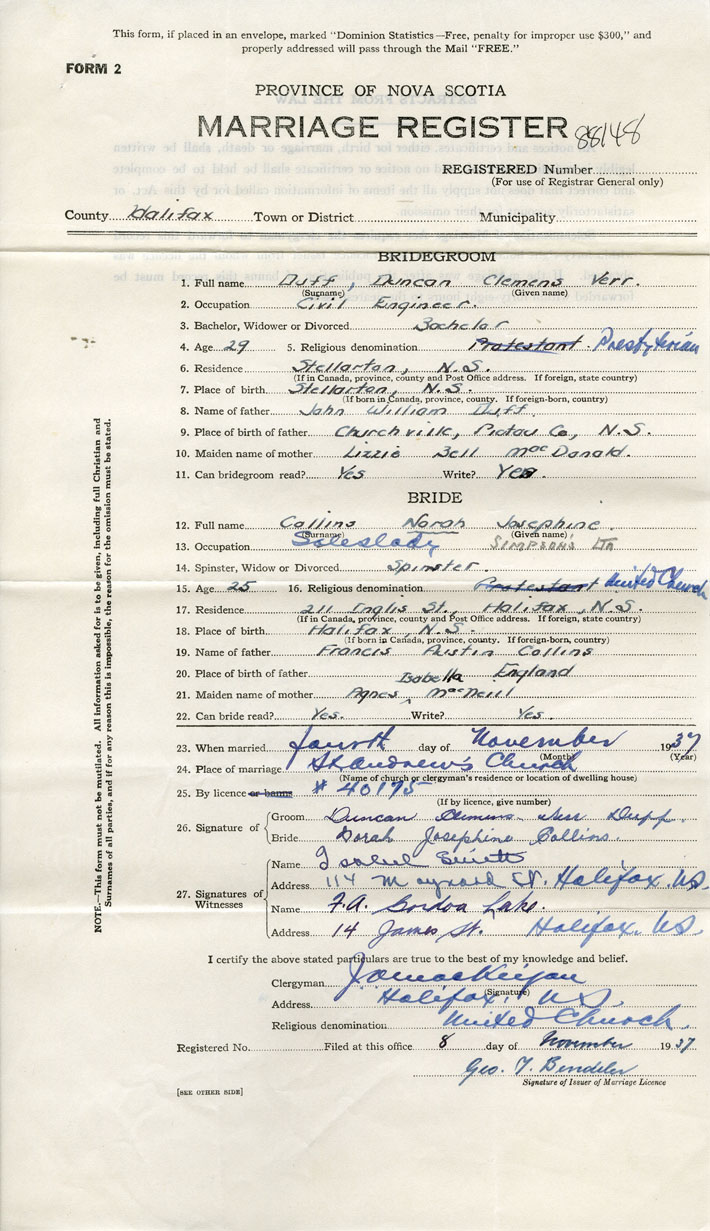 This form, if placed in an envelope, marked "Dominion Statistics—Free, penalty for improper use $300," and
properly addressed will pass through the Mail "FREE."
FORM 2
PROVINCE OF NOVA SCOTIA
MARRIAGE REGISTER 88148
REGISTERED Number
(For use of Registrar General only)
County Halifax Town or District Municipality
BRIDEGROOM
1. Full name Duff, Duncan Clemens Verr.
(Surname) (Given name)
2. Occupation Civil Engineer.
3. Bachelor, Widower or Divorced Bachelor
4. Age 29 5. Religious denomination Protestant Presbyterian
6. Residence Stellarton, N.S.
(If in Canada, province, county and Post Office address. If foreign, state country)
7. Place of birth Stellarton, N.S.
(If born in Canada, province, county. If foreign-born, country)
8. Name of father John William Duff.
9. Place of birth of father Churchville, Pictou Co, N.S.
10. Maiden name of mother Lizzie Bell MacDonald.
11. Can bridegroom read? Yes Write? Yes
BRIDE
12. Full name Collins Norah Josephine.
(Surname) (Given name)
13. Occupation Saleslady SIMPSONS LTD
14. Spinster, Widow or Divorced Spinster.
15. Age 25 16. Religious denomination Protestant United Church
17. Residence 211 Inglis St., Halifax, N.S.
(If in Canada, province, county and Post Office address. If foreign, state country)
18. Place of birth Halifax, N.S.
(If born in Canada, province, county. If foreign-born, country)
19. Name of father Francis Austin Collins
20. Place of birth of father England
21. Maiden name of mother Agnes Isabella MacNeill
22. Can bride read? Yes. Write? Yes.
23. When married fourth day of November 1937
(Month) (Year)
24. Place of marriage St Andrew's Church
(Name of church or clergyman's residence or location of dwelling house)
25. By licence or banns # 40175
(If by licence, give number)
26. Signature of Groom Duncan Clemens Verr Duff.
Bride Norah Josephine Collins.
27. Signatures of Witnesses
Name Isabel
Address 114 Maynard St. Halifax, N.S.
Name F.A. Gordon Lake.
Address 14 James St. Halifax, N.S.
I certify the above stated particulars are true to the best of my knowledge and belief.
Clergyman
(Signature)
Address Halifax, N.S.
Religious denomination United Church.
Registered No. Filed at this office 8 day of November 1937
Geo. T.
Signature of Issuer of Marriage Licence
[SEE OTHER SIDE]
NOTE.—This form must not be mutilated. All information asked for is to be given, including full Christian and
Surnames of all parties, and if for any reason this is impossible, the reason for the omission must be stated.